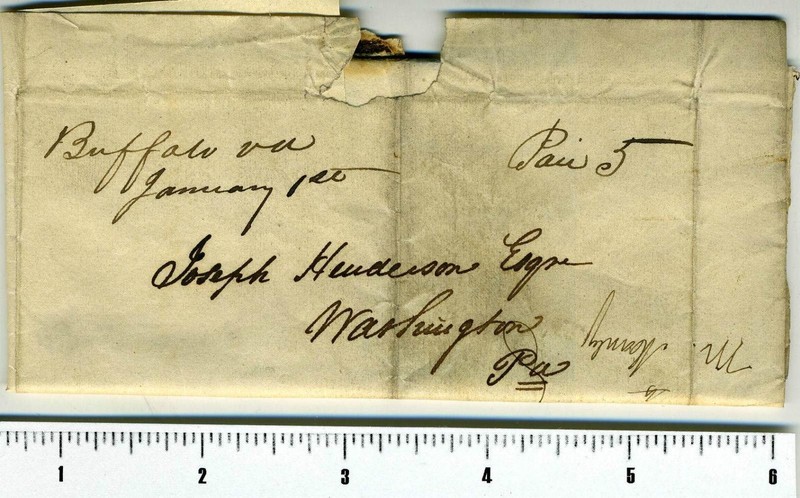 Buffalo va
January 1st
Paid 5
Joseph Henderson Esqr
Washington
Pa
M.
1 2 3 4 5 6